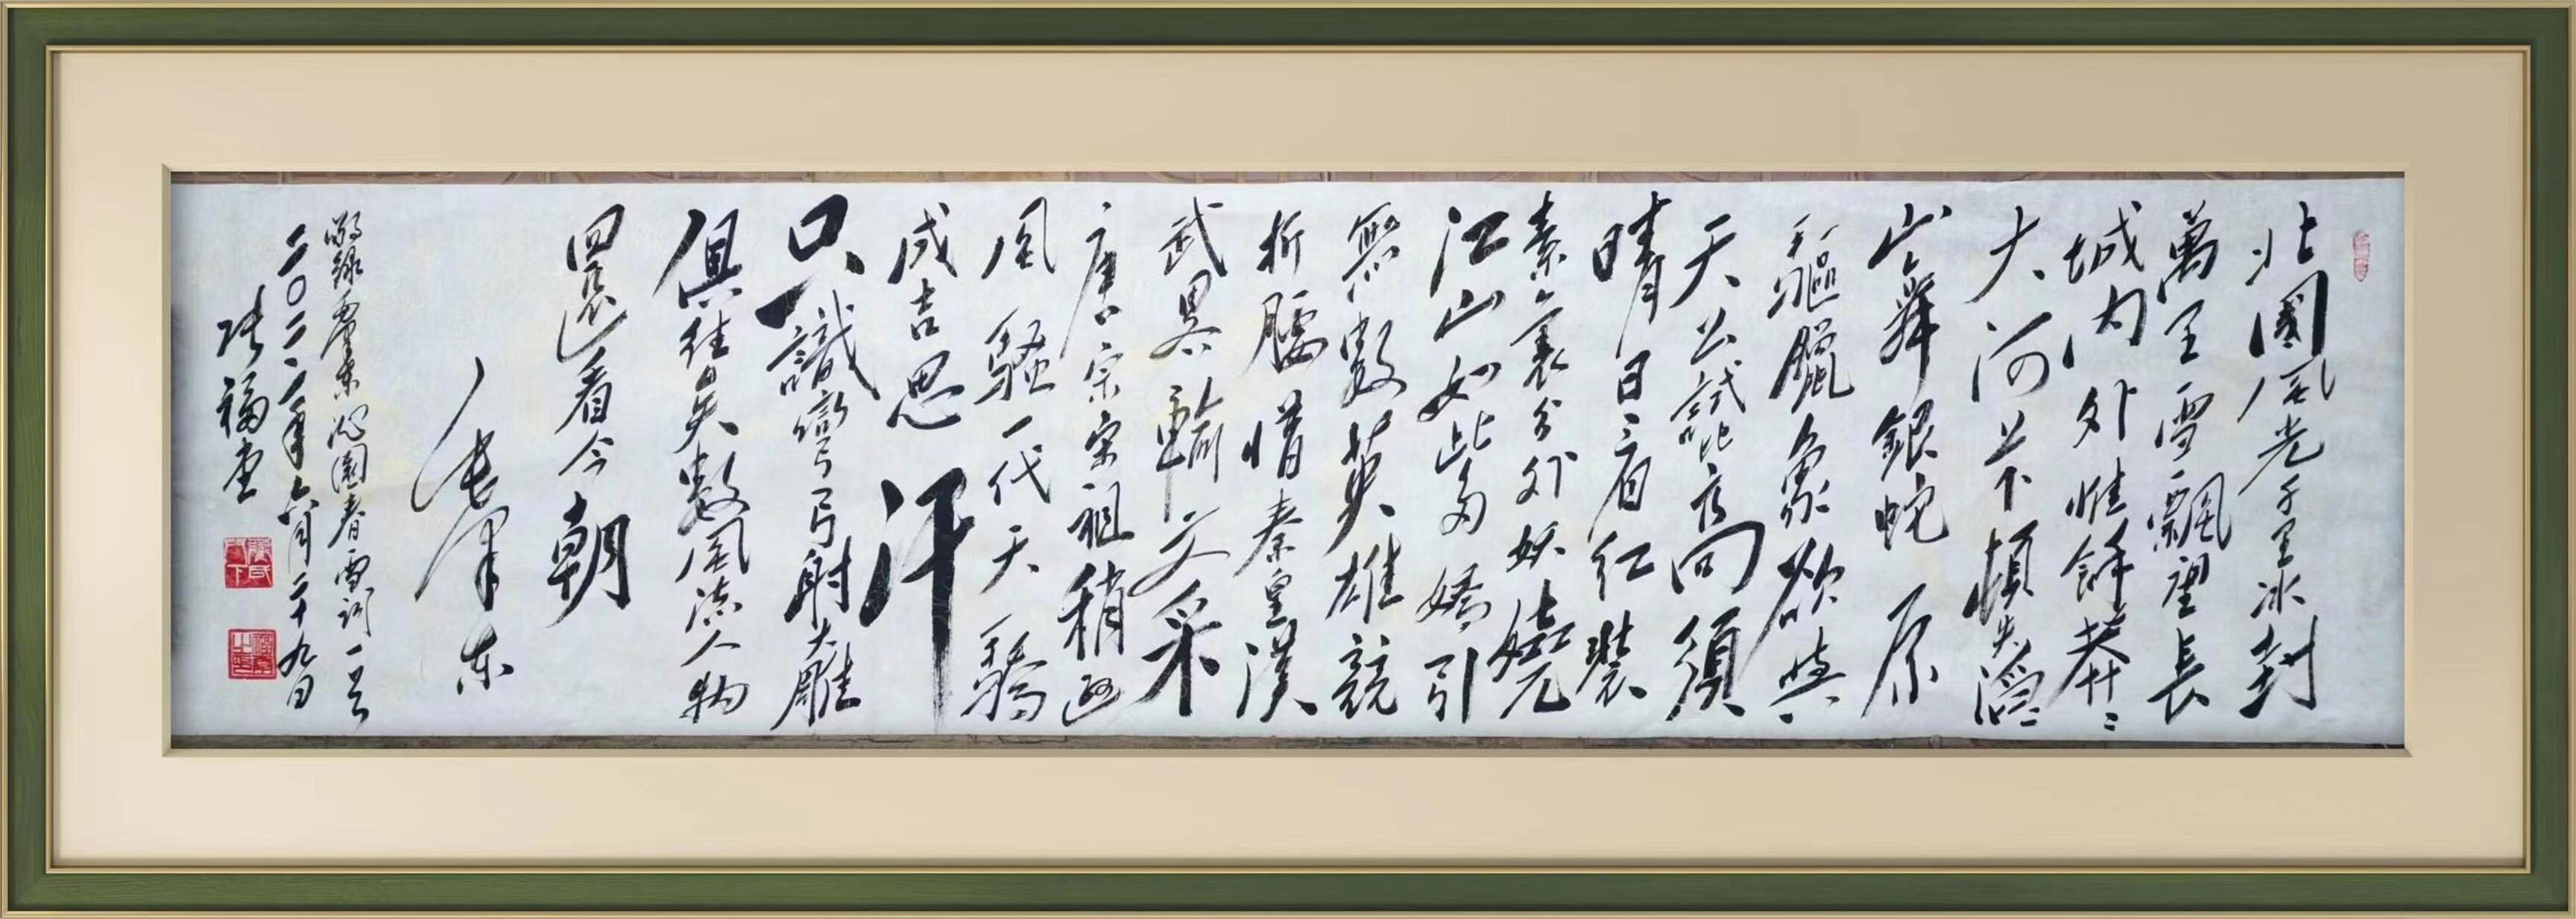 北國風光千里冰封
萬里雪飄望長
城内外惟餘莽〻
大河上下頓失滔〻
山舞銀蛇原
驅臘象欲與
天公試比高須
晴日看紅裝
素裹分外妖嬈
江山如此多嬌引
無數英雄競
折腰惜秦皇漢
武略輸文采
唐宗宋祖稍遜
風騷一代天驕
成吉思汗
只識彎弓射大雕
俱往矣數風流人物
還看今朝
毛澤東
敬録毛澤東沁園春雪詞一首
二〇二二年六月二十九日
張福堂